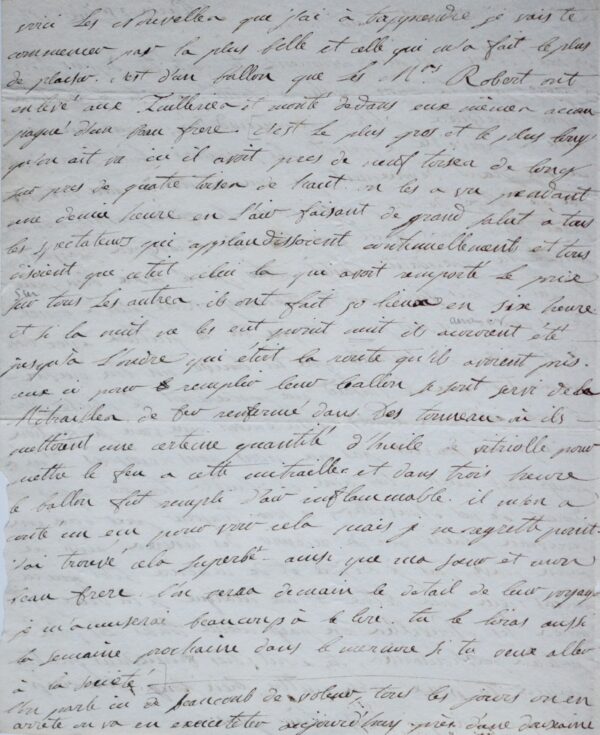 voici les nouvelles que j'ai à t'apprendre je vais te
commencer par la plus belle et celle qui m'a fait le plus
de plaisir. c'est d'un ballon que les Mrs Robert ont
enlevé aux Tuilleries et monté dedans eux mêmes accom
pagné d'un beau frere. c'est le plus gros et le plus long
qu'on ait vu ici il avoit pres de neuf toises de long
sur pres de quatre toises de haut. on les a vu pendant
une demie heure en l'air faisant de grand salut a tous
les spectateurs qui applaudissoient continuellement et tous
disoient que cetoit celui la que avoit remporté le prix
sur tous les autres. ils ont fait 50 lieux en six heure
et si la nuit ne les eut point nuit ils auroient été
jusqu'à Londre qui etoit la route qu'ils avoient pris.
ceux ci pour remplir leur ballon se sont servi de la
Mitrailles de fer renfermé dans des tonneau où ils
mettoient une certaine quantité d'huile de vitriolle pour
mettre le feu a cette mitraille et dans trois heure
le ballon fut rempli d'air inflammable. il m'en a
couté un ecu pour voir cela mais je ne regrette point.
j'ai trouvé cela superbe ainsi que ma sœur et mon
beau frere. l'on verra demain le detail de leur voyage
je m'amuserai beaucoup à le lire. tu le liras aussi
la semaine prochaine dans le mercure si tu veux aller
à la société
l'on parle ici de beaucoub de voleur, tous les jours on en
arrête on va en executer aujourd'huy près d'une douzaine